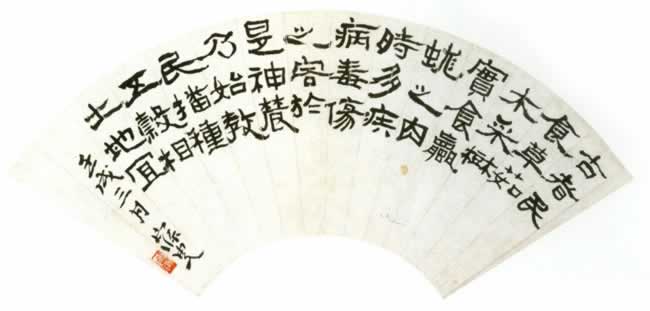 古者民
食草茹
木采
實食蠃
蛖之肉
時多疾
病毒傷
之害於
是神農
乃始教
民播種
五穀相
土地宜
壬戌三月